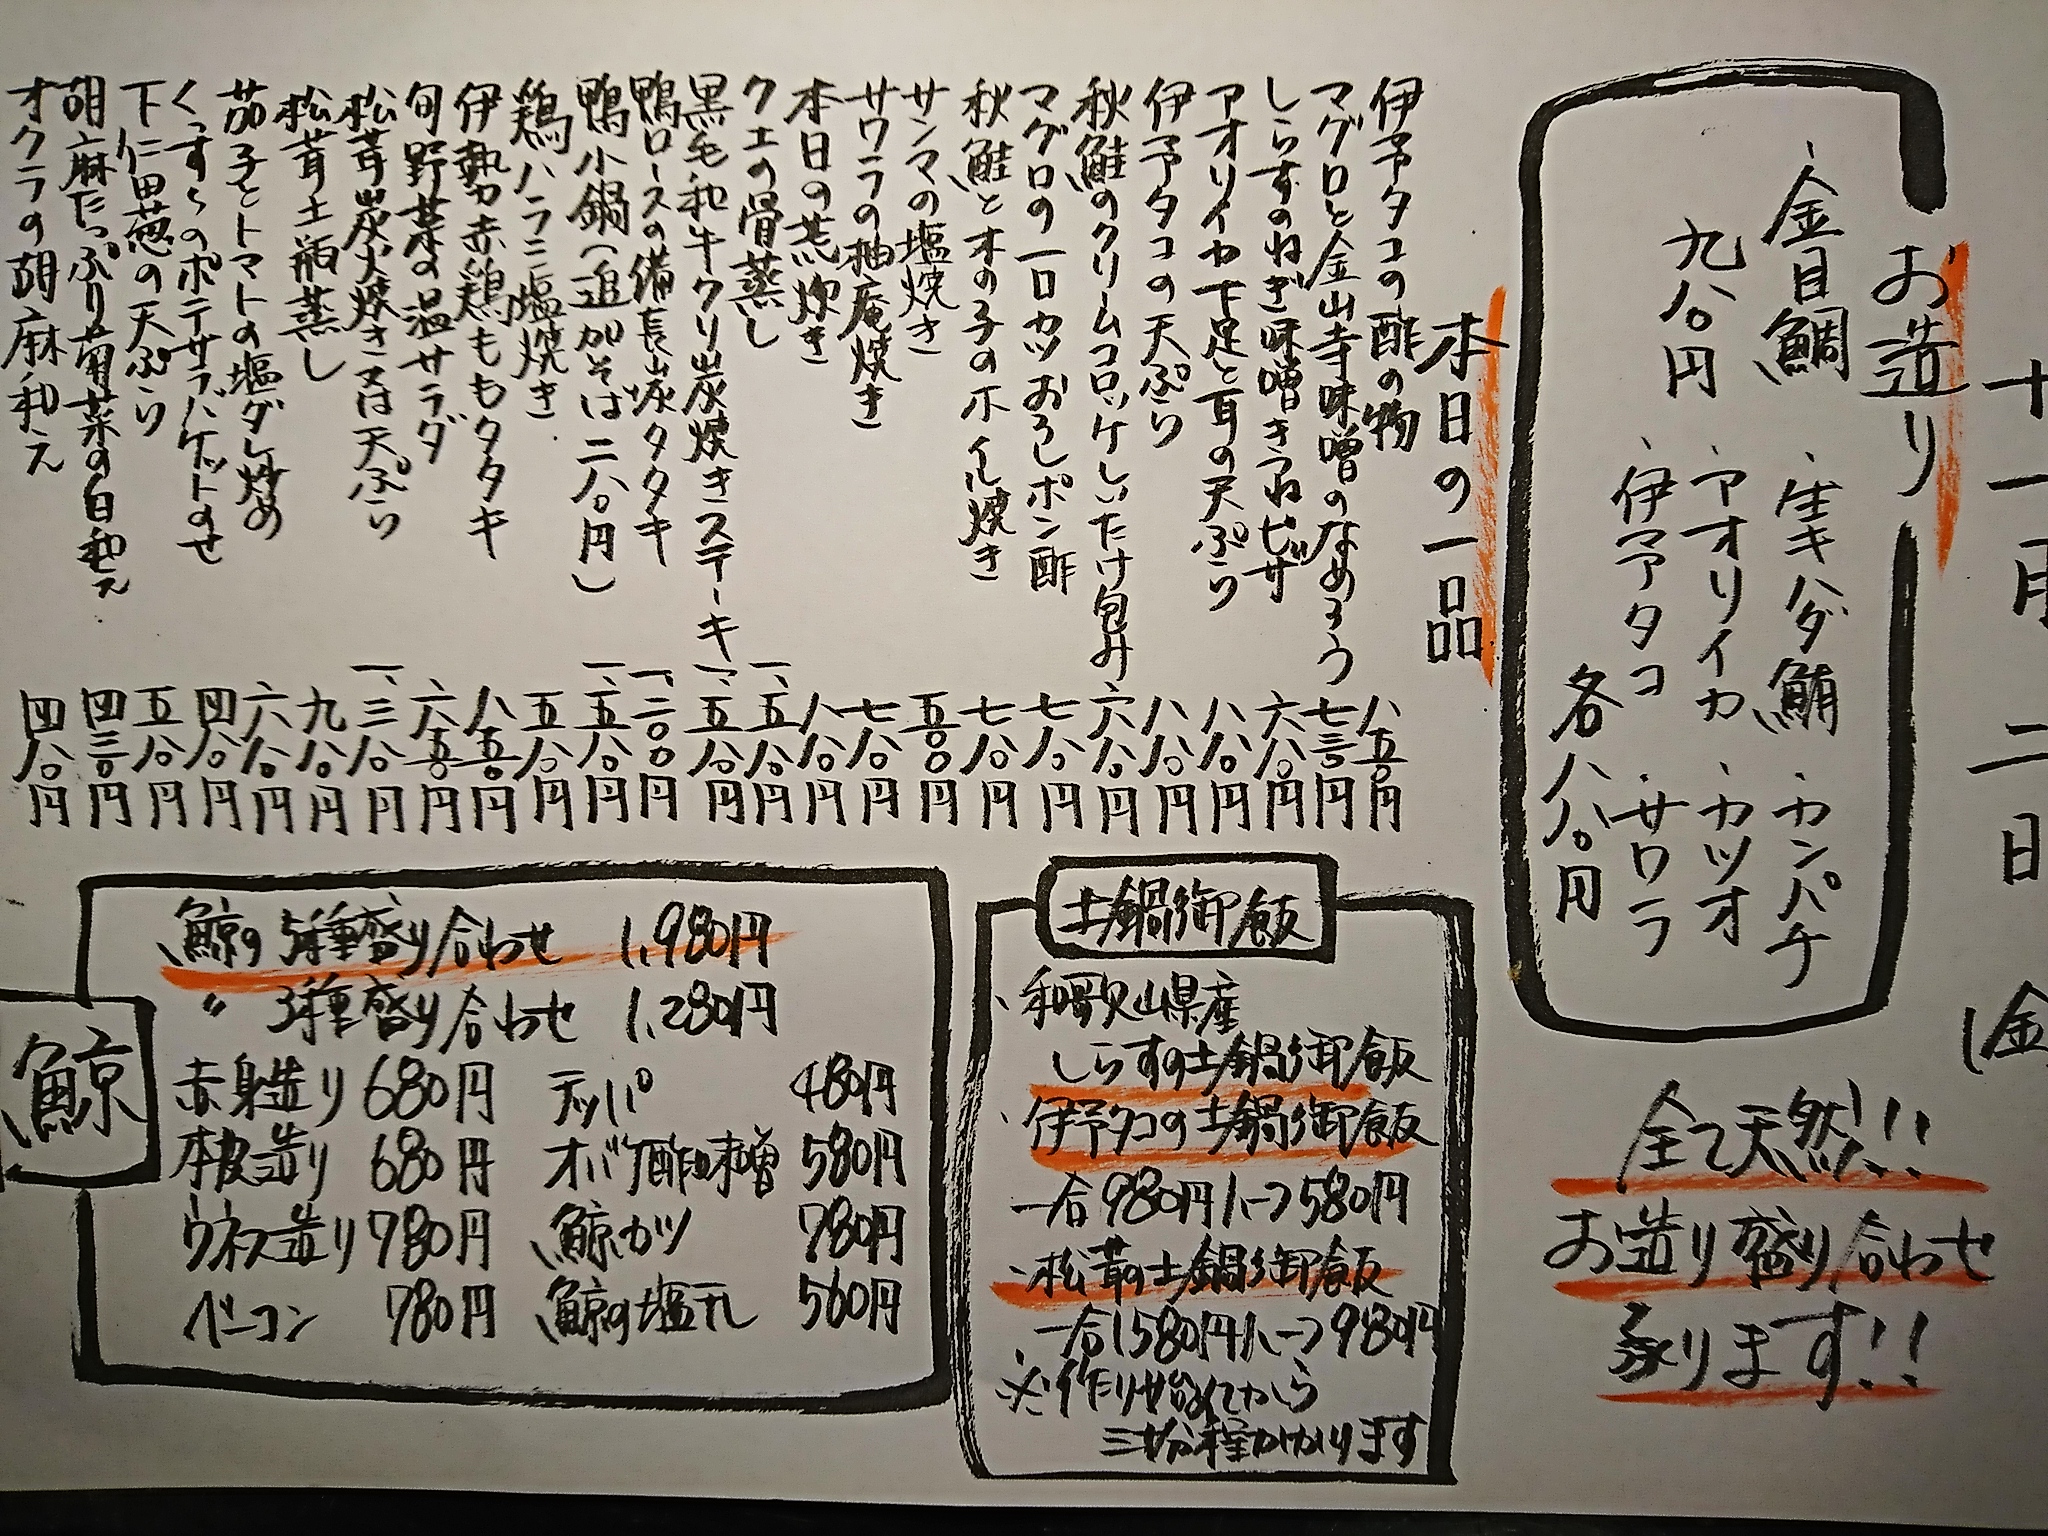 十一月二日(金
お造り
、金目鯛 九八〇円
、生キハダ鮪 、カンパチ
、アオリイカ 、カツオ
、伊予タコ 、サワラ
各八八〇円
全て天然!!
お造り盛り合わせ
承ります!!
本日の一品
伊予タコの酢の物 八五〇円
マグロと金山寺味噌のなめろう 七三〇円
しらすのねぎ味噌きつねピザ 六八〇円
アオリイカ下足と耳の天ぷら 八八〇円
伊予タコの天ぷら 八八〇円
秋鮭のクリームコロッケしいたけ包み 六八〇円
マグロの一口カツおろしポン酢 七八〇円
秋鮭と木の子のホイル焼き 七八〇円
サンマの塩焼き 五〇〇円
サワラの柚庵焼き 七八〇円
本日の荒炊き 八八〇円
クエの骨蒸し 一、五八〇円
黒毛和牛クリ炭焼きステーキ 一、五八〇円
鴨ロースの備長炭タタキ 一、二〇〇円
鴨小鍋(追加そば二八〇円) 一、五八〇円
鶏ハラミ塩焼き 五八〇円
伊勢赤鶏ももタタキ 八五〇円
旬野菜の温サラダ 六五〇円
松茸炭火焼き又は天ぷら 一、三八〇円
松茸土瓶蒸し 九八〇円
茄子とトマトの塩ダレ炒め 六八〇円
くんすらのポテサラバケットのせ 四八〇円
下仁田葱の天ぷら 五八〇円
胡麻たっぷり菊菜の白和え 四三〇円
オクラの胡麻和え 四八〇円
土鍋御飯
、和歌山県産
しらすの土鍋御飯
、伊予タコの土鍋御飯
一合980円ハーフ580円
、松茸の土鍋御飯
一合1,580円ハーフ980円
※作り始めてから
三十分程かかります
鯨
鯨の5種盛り合わせ 1,980円
〃 3種盛り合わせ 1,280円
赤身造り 680円 テッパ 480円
本皮造り 680円 オバケ酢味噌 580円
ウネス造り 780円 鯨カツ 780円
ベーコン 780円 鯨の塩干し 560円